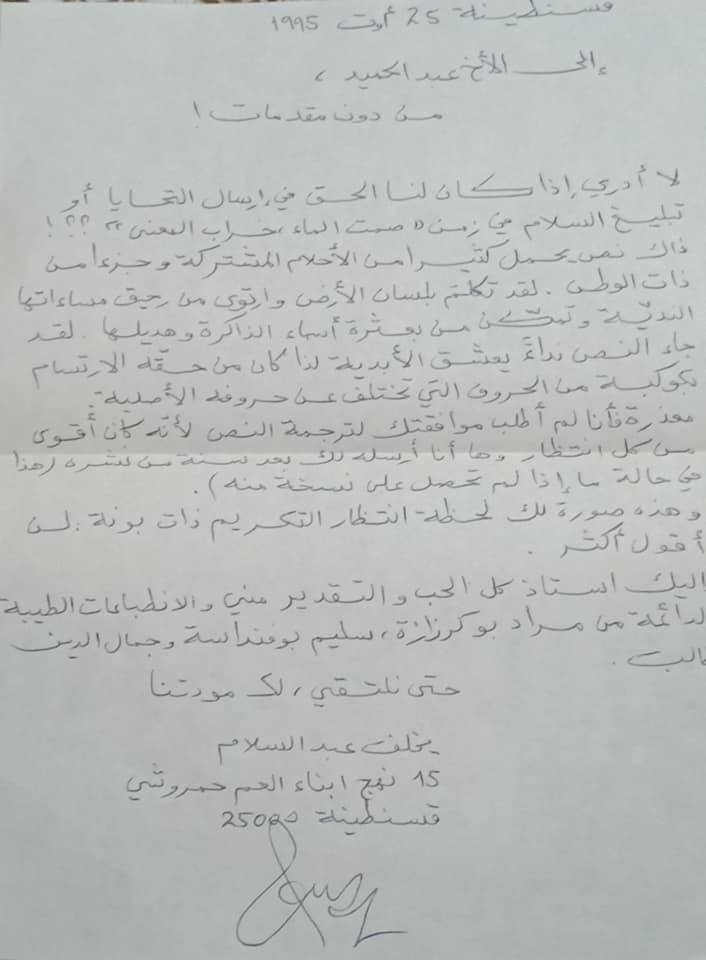 قسنطينة 25 أوت 1995
إلى الأخ عبد الحميد ،
من دون مقدمات !
لا أدري إذا كان لنا الحق في إرسال التحايا أو
تبليغ السلام في زمن « صمت الماء ، خراب المعنى » ؟؟!
ذاك نص يحمل كثيرا من الأحلام المشتركة وجزءا من
ذات الوطن . لقد تكلم بلسان الأرض وارتوى من رحيق مساءاتها
النديّة وتمكّن من بعثرة أسماء الذاكرة وهديلها . لقد
جاء النص نداءً يعشق الأبدية لذا كان من حقّه الارتسام
بكوكبة من الحروف التي تختلف عن حروفه الأصلية .
معذرة فأنا لم أطلب موافقتك لترجمة النص لأنه كان أقوى
من كل انتظار وها أنا أرسله لك بعد سنة من نشره (هذا
في حالة ما إذا لم تحصل على نسخة منه) .
وهذه صورة لك لحظة انتظار التكريم ذات بونة . لن
أقول أكثر .
إليك استاذ كل الحب والتقدير مني والانطباعات الطيبة
لدائمة من مراد بوكرزازة ، سليم بوفنداسة وجمال الدين
طالب .
حتى نلتقي ، لك مودتنا
يخلف عبد السلام
15 نهج ابناء العم حمروشي
قسنطينة 25000